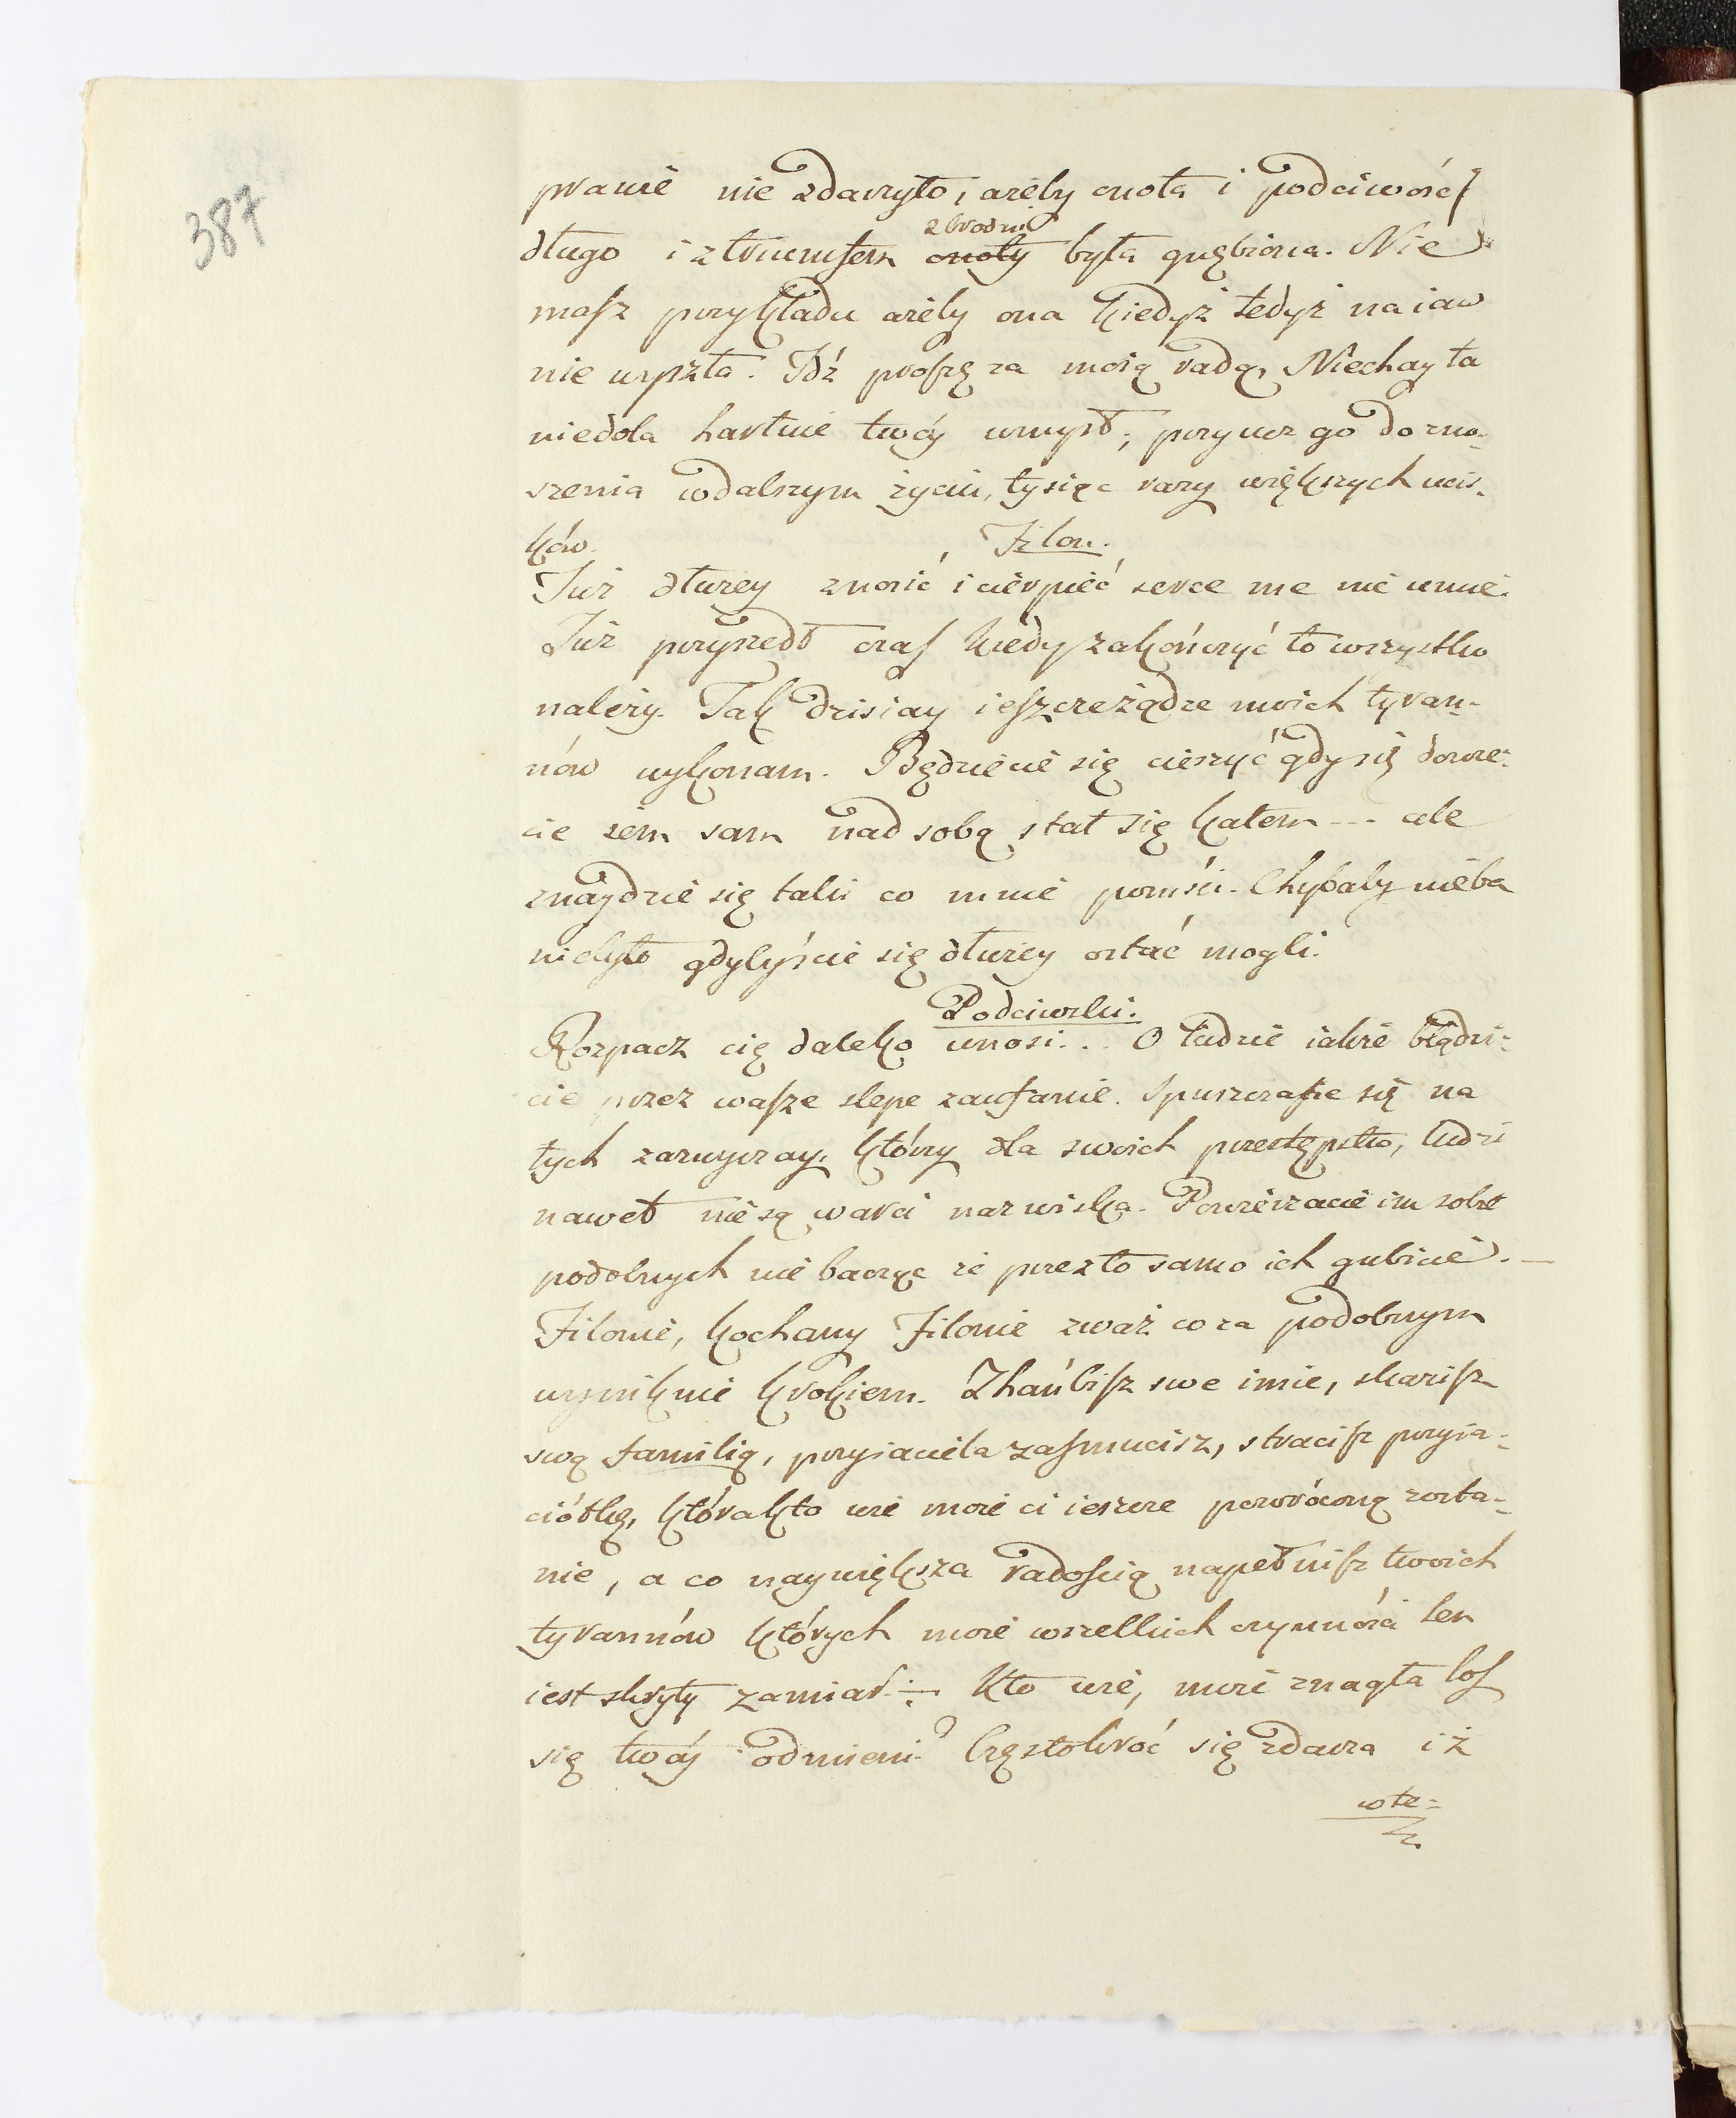 387
prawie nie zdarzyło, ażeby cnota i podciwość
zbrodni
długo i z triumfem cnoty była gnębiona. Nie
masz przykładu ażeby ona kiedyż tedyż na iaw
nie wyszła. Idź proszę za moią radą, Niechay ta
niedola hartuie twóy umysł; przyucz go do zno-
szenia w dalszym życiu, tysiąc razy większych ucis-
ków.
Filon.
Już dłużey znosić i cierpieć serce me nie umie.
Już przyszedł czas kiedy zakończyć to wszystko
należy. Tak dzisiay ieszcze żądze moich tyran-
nów wykonam. Będziecie się cieszyć gdy się dowie-
cie żem sam nad sobą stał się katem --- ale
znaydzie się taki co mnie pomści. Chybaby nieba
niebyło gdybyście się dłużey ostać mogli.
Podciwski.
Rozpacz cię daleko unosi... O ludzie iakże błądzi-
cie przez wasze slepe zaufanie. Spuszczacie się na
tych zazwyczay, którzy dla swoich przestępstw, ludzi
nawet nie są warci nazwiska. Powierzacie im sobie
podobnych nie bacząc że przez to samo ich gubicie. —
Filonie, kochany Filonie zważ co za podobnym
wyniknie krokiem. Zhańbisz swe imie, skazisz
swą familią, przyiaciela zasmucisz, stracisz przyia-
ciółkę, którą kto wie może ci ieszcze powróconą zosta-
nie, a co naywiększa radością napełnisz twoich
tyrannów których może wszelkich czynności ten
iest skryty zamiar. ÷ Kto wie, może znagła los
się twóy odmieni? Częstokroć się zdarza iż
w te-